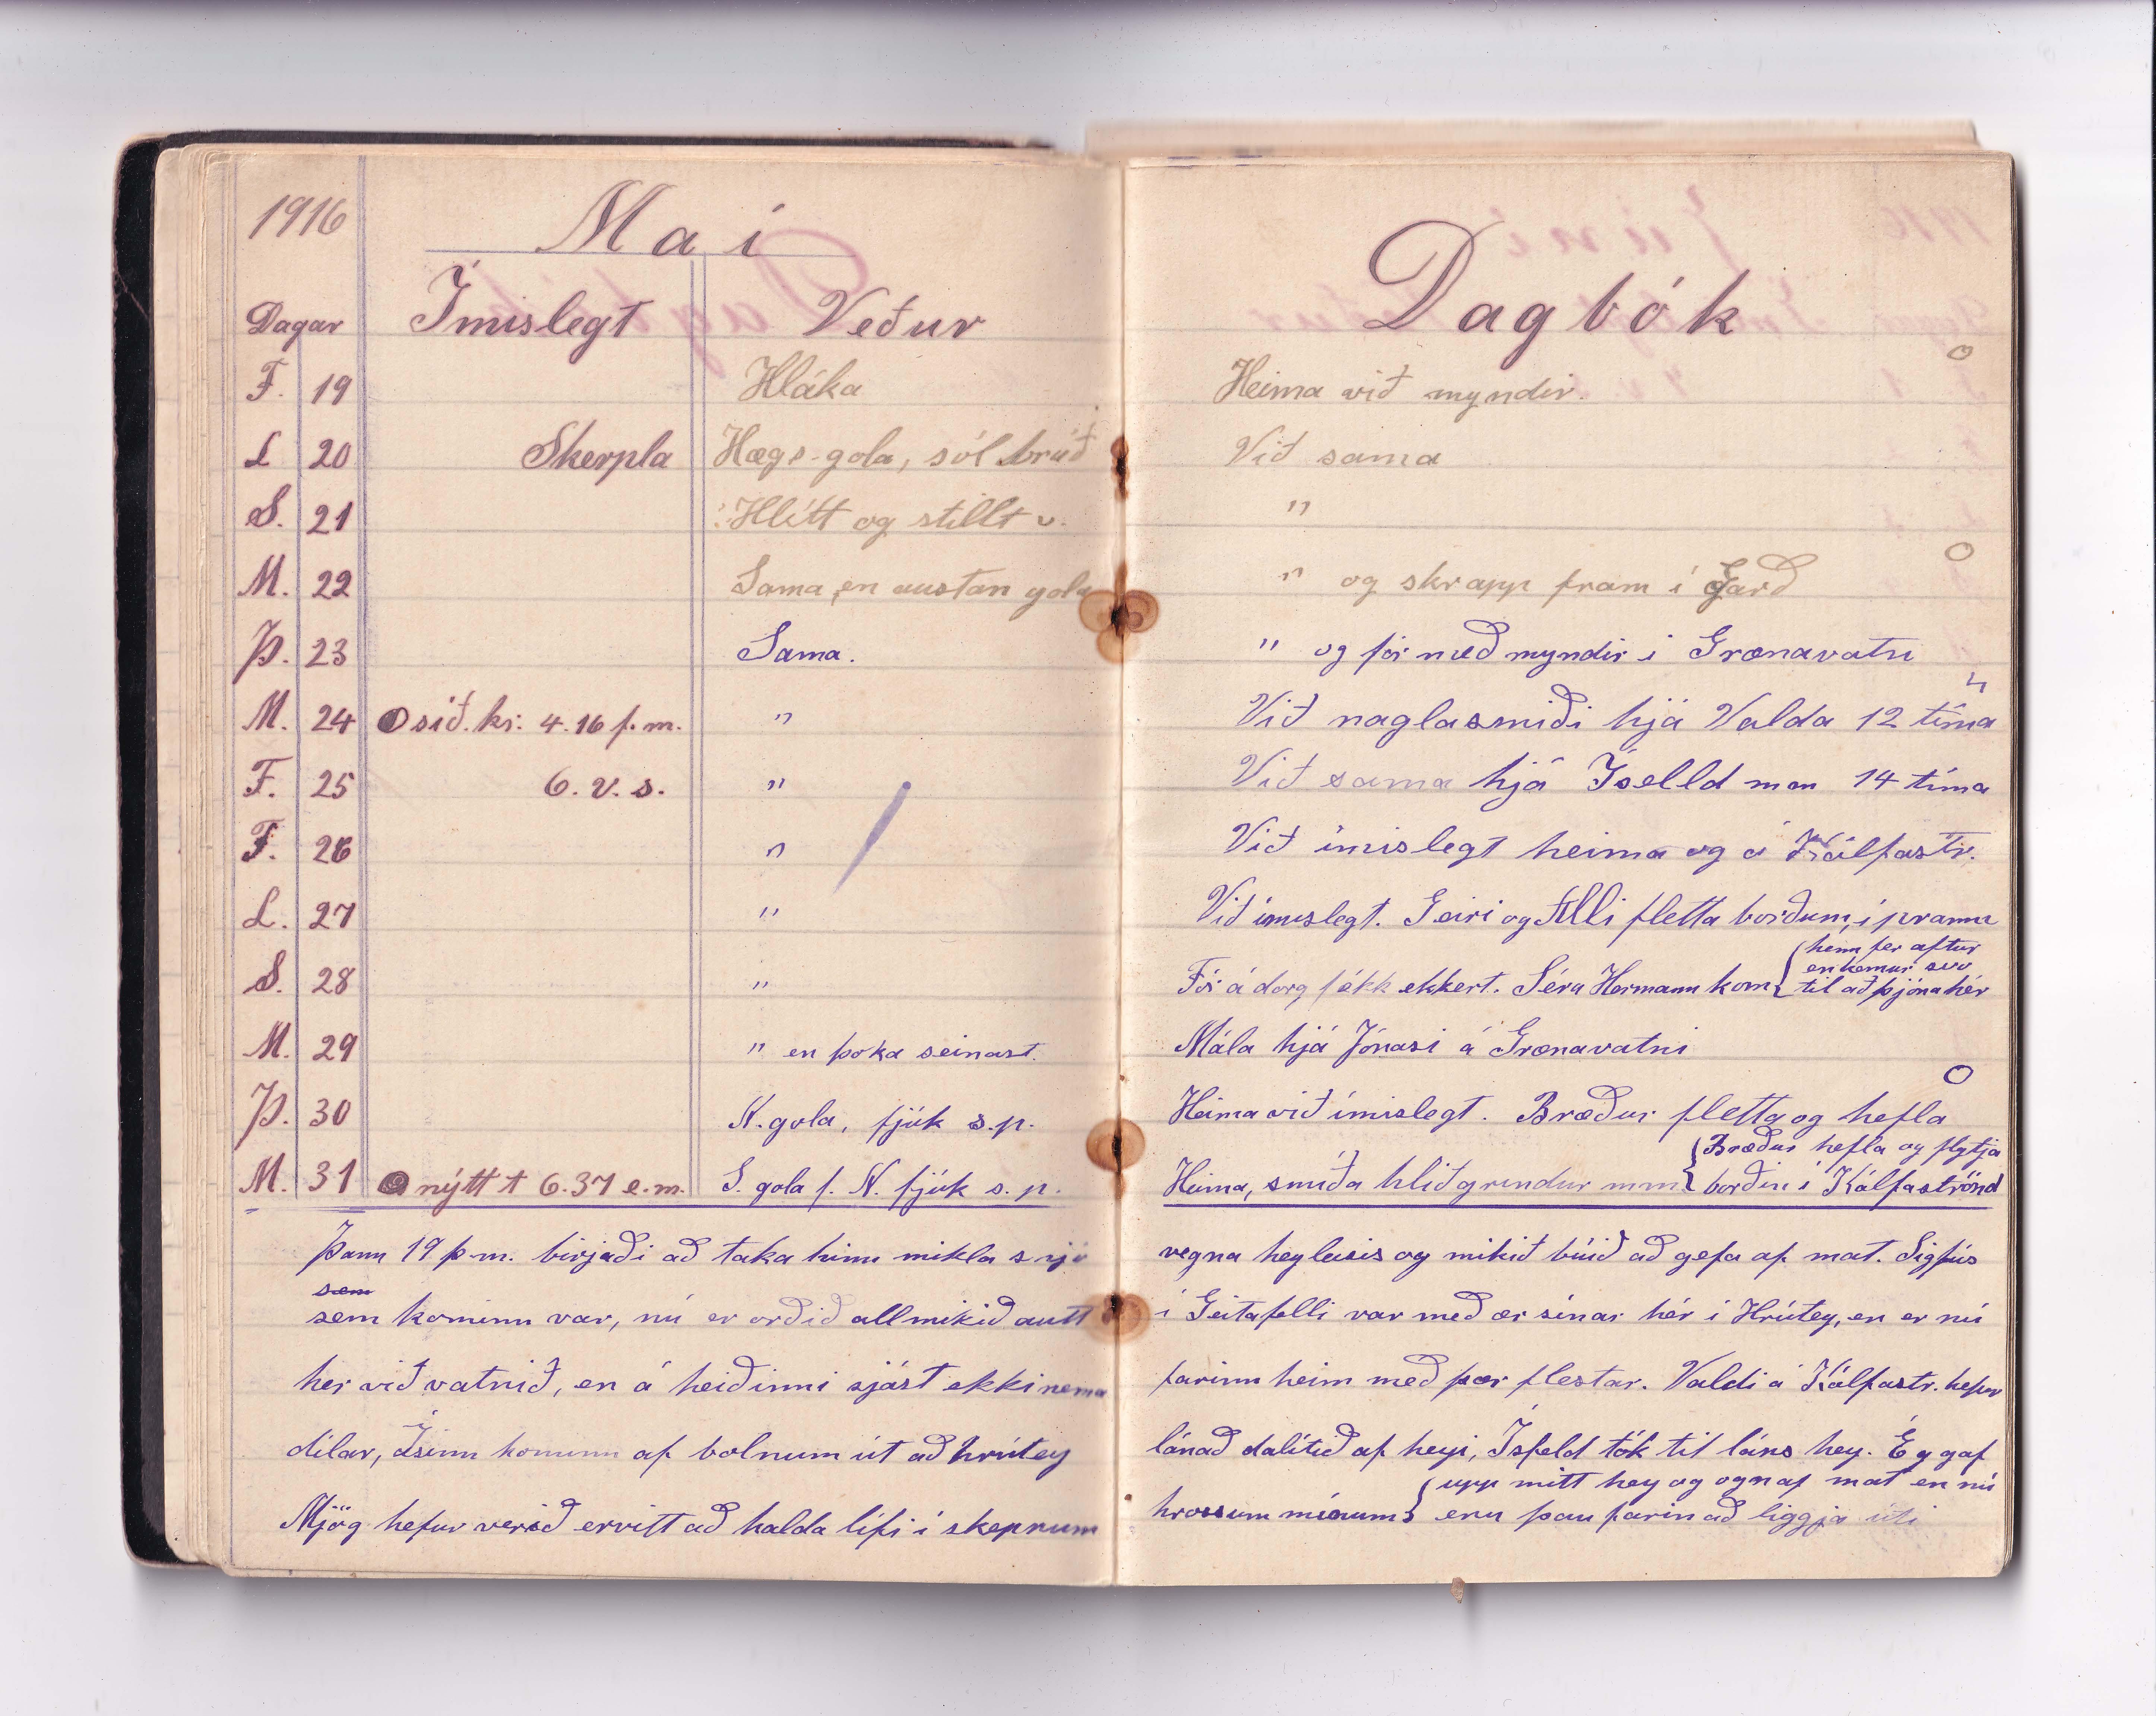 1916
Maí
Dagar Ímislegt Veður
F. 19 Hláka
L 20 Skerpla Hægs-gola, sólbráð
S. 21 Hlítt og stillt v.
M. 22 Sama, en austan gola
Þ. 23 Sama.
M. 24 síð. kv. 4.16 f.m. "
F. 25 6. v. s. "
F. 26 "
L. 27 "
S. 28 "
M. 29 " en þoka seinast.
Þ. 30 N. gola, fjúk s.p.
M. 31 nýtt t 6.37 e.m. S. gola f. N. fjúk s.p.
Þann 19 þ.m. birjaði að taka hinn mikla snjó
sem
sem kominn var, nú er orðið allmikið autt
her við vatnið, en á heiðinni sjást ekki nema
dílar, Ísinn kominn af bolnum út að Hrútey
Mjög hefur verið ervitt að halda lífi í skepnum
Dagbók
Heima við myndir.
Við sama
"
" og skrapp fram í Garð
" og fór með myndir í Grænavatn
Við naglasmiði hjá Valda 12 tíma
Við sama hjá 14 tíma
Við ímislegt heima og á Kálfastr.
Við ímislegt. Geiri og Alli fletta borðum, í pramma
Fór á dorg fékk ekkert. Séra Hermann kom { henn fer aftur
en kemur svo
til að þjóna hér
Mála hjá Jónasi á Grænavatni
Heima við ímislegt. Bræður fletta og hefla
Heima, smíða hliðgrindur mm { Bræður hefla og flytja
borðin í Kálfaströnd
vegna heyleisis og mikið búið að gefa af mat. Sigfús
í Geitafelli var með ær sínar hér í Hrútey, en er nú
farinn heim með þær flestar. Valdi á Kálfastr. hefur
lánað dalítið af heyi, Ísfeld tók til láns hey. Ég gaf
hrossum mínum { upp mitt hey og ögn af mat en nú
eru þau farin að liggja úti